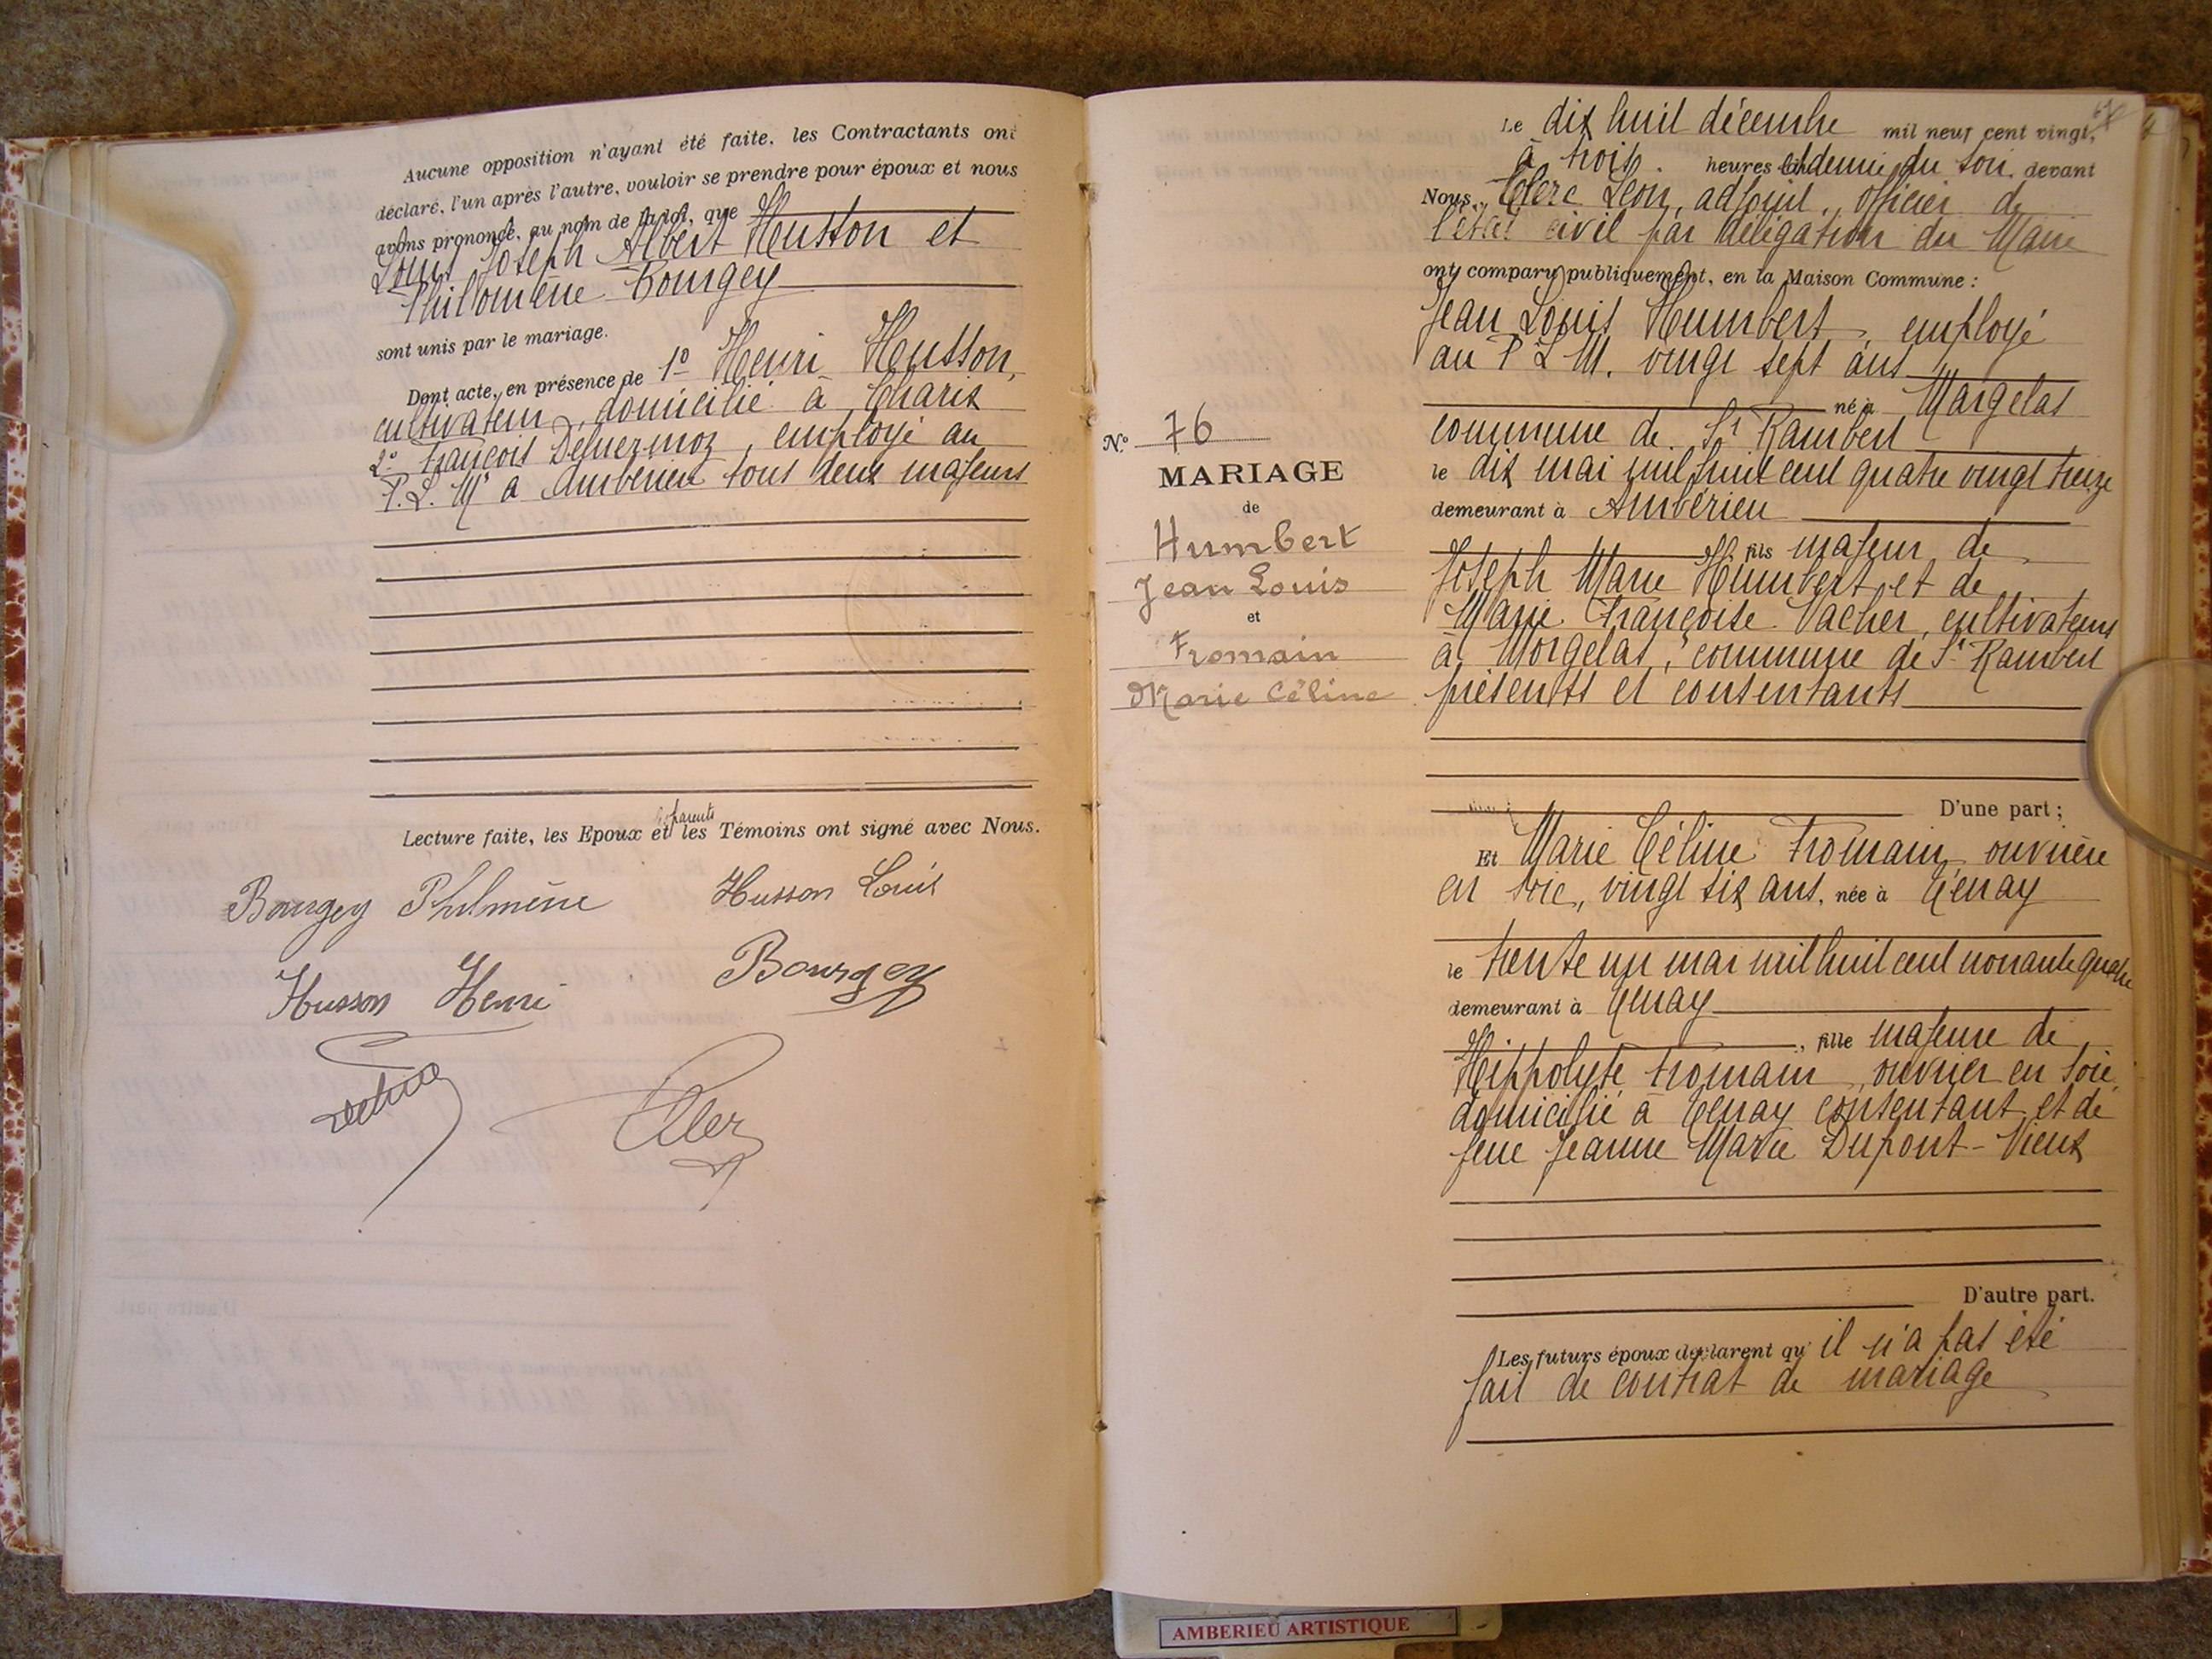 Aucune opposition n'ayant été faite, les Contractants ont
déclaré, l'un après l'autre, vouloir se prendre pour époux et nous
avons prononcé, au nom de la loi, que
Louis Joseph Albert Husson et
Philomène Bourgey
sont unis par le mariage.
Dont acte, en présence de 1º Henri Husson,
cultivateur, domicilié à Charix
2º François, employé au
P. L. M à Ambérieu tous deux majeurs
les parents
Lecture faite, les Epoux et les Témoins ont signé avec Nous.
Bourgey Philmène Husson Louis
Husson Henri Bourgey
Clerc
Le dix huit décembre mil neuf cent vingt,
à trois heures et demie du soir, devant
Nous, Clerc Léon, adjoint, officier de
l'état civil par délégation du Maire
ont comparu publiquement, en la Maison Commune :
Jean Louis Humbert, employé
au P L M. vingt sept ans
né à Margelas
commune de St Rambert
le dix mai mil huit cent quatre vingt treize
demeurant à Ambérieu
fils majeur de
Joseph Marie Humbert et de
Marie Françoise Vacher, cultivateurs
à Morgelas, commune de St Rambert
présents et consentants
D'une part ;
Nº 76
MARIAGE
de
Humbert
Jean Louis
et
Fromain
Marie Céline
Et Marie Céline Fromain, ouvrière
en soie, vingt six ans, née à Tenay
le trente un mai mil huit cent nonante quatre
demeurant à Tenay
fille majeure de
Hippolyte Fromain, ouvrier en soie,
domicilié à Tenay consentant et de
feue Jeanne Marie Dupont-Vieux
D'autre part.
Les futurs époux déclarent qu'il n'a pas été
fait de contrat de mariage
AMBERIEU ARTISTIQUE